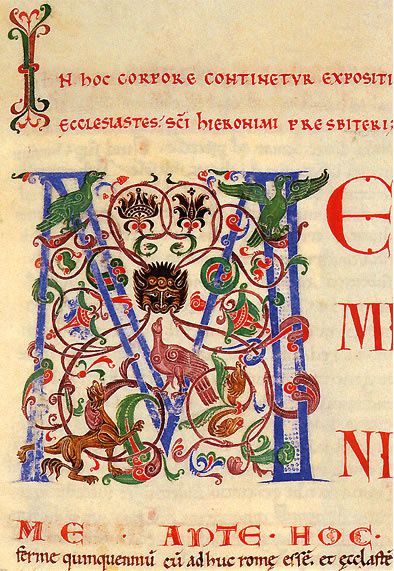 IN HOC CORPORE CONTINETVR EXPOSITI
ECCLESIASTES. SC̄I HIERONIMI PRESBITERI
M E
MI
NI
M E · ANTE · HOC ·
ferme quinquenniū cū adhuc romę essē. et ęcclaste